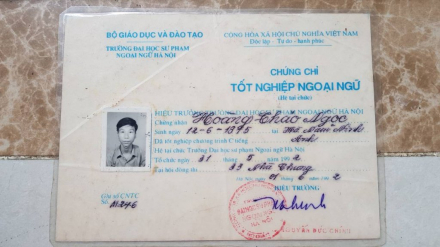 BỘ GIÁO DỤC VÀ ĐÀO TẠO
TRƯỜNG ĐẠI HỌC SƯ PHẠM
NGOẠI NGỮ HÀ NỘI
CỘNG HÒA XÃ HỘI CHỦ NGHĨA VIỆT NAM
Độc lập - Tự do - hạnh phúc
CHỨNG CHỈ
TỐT NGHIỆP NGOẠI NGỮ
(Hệ tại chức)
HIỆU TRƯỞNG TRƯỜNG ĐẠI HỌC SƯ PHẠM NGOẠI NGỮ HÀ NỘI
Chứng nhận Hoàng Thao Ngọc
Sinh ngày 12-6-1975 tại
Đã tốt nghiệp chương trình C tiếng Anh
Hệ tại chức Trường Đại học sư phạm Ngoại ngữ Hà Nội
Tổ chức ngày 31 5 năm 199
Tại hội đồng thi
6 2
HIỆU TRƯỞNG
Ghi sổ CNTC
Số